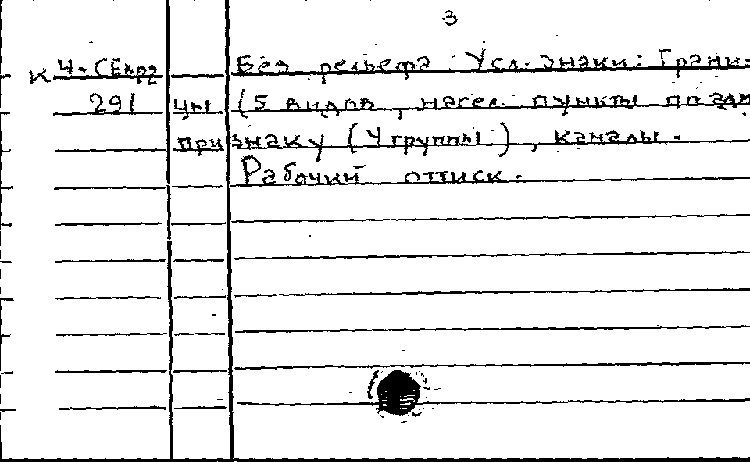 3
К 4-СЕвр2 Без рельефа Усл. знаки: Грани-
291 цы (5 видов, насел. пункты по адм
признаку (4 группы), каналы.
Рабочий оттиск.